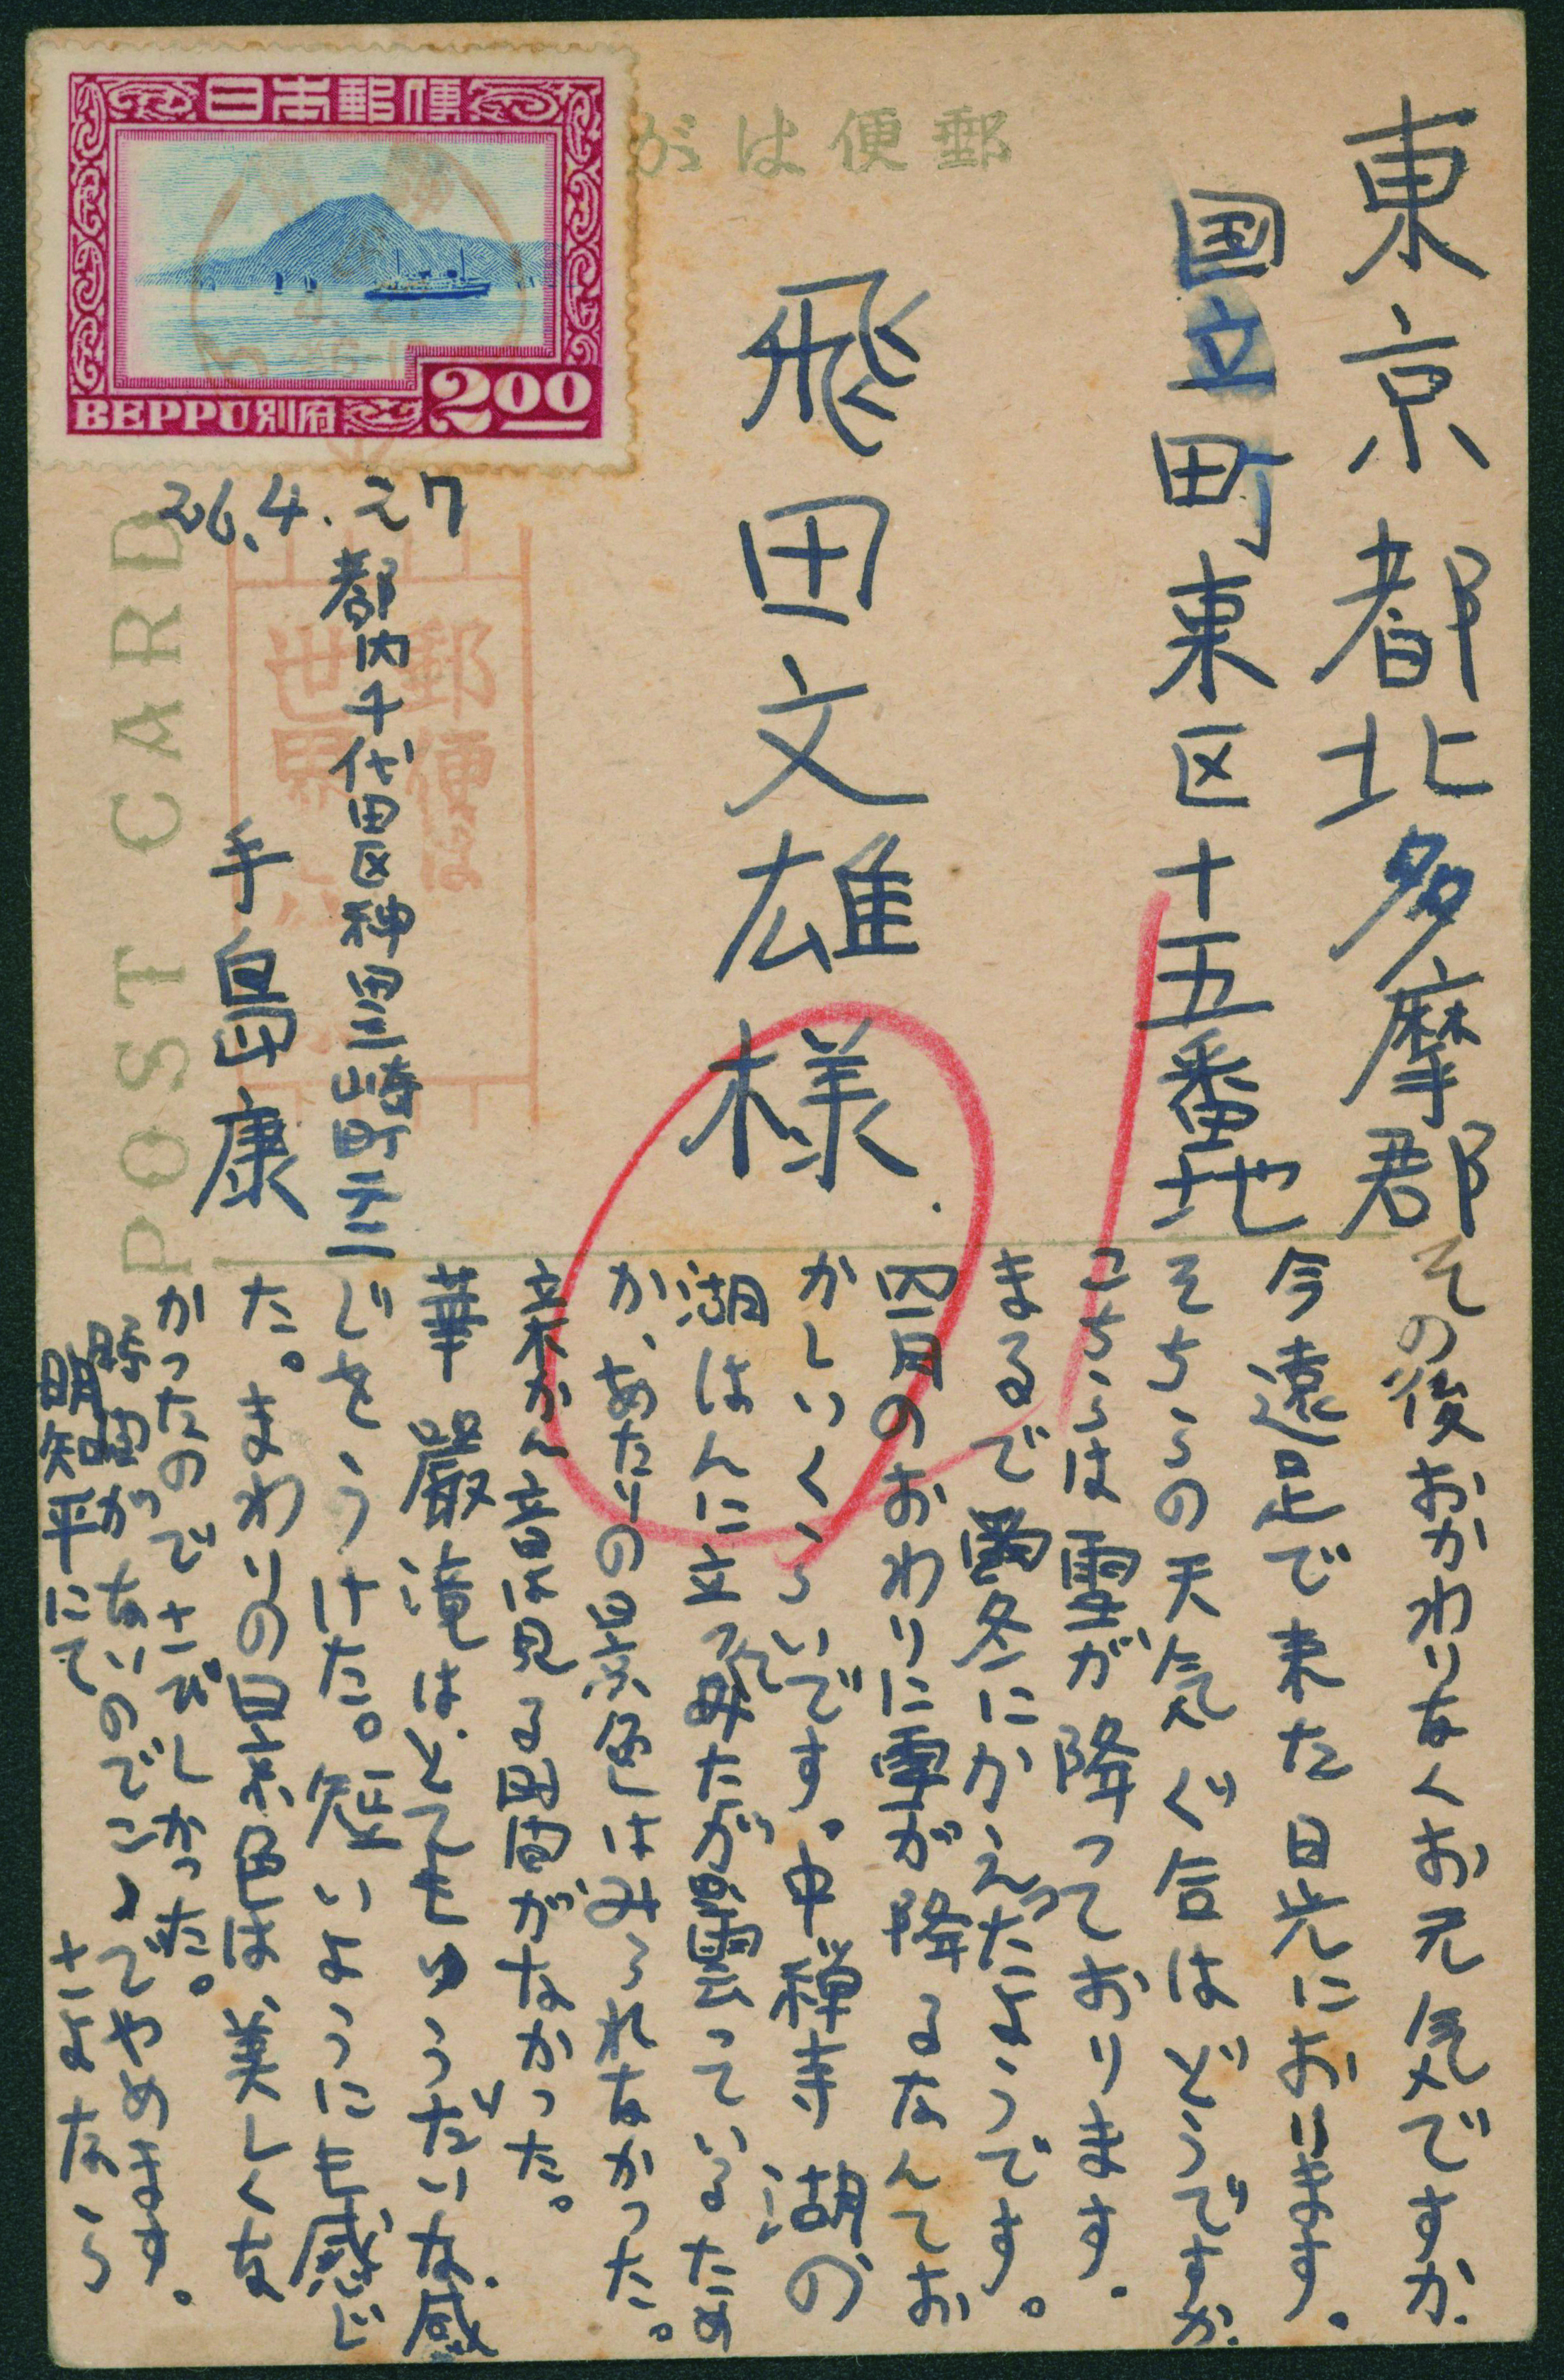 日本郵便
BEPPU別府 2.00
郵便はが
POST CARD
東京都北多摩郡
国立町東区十五番地
飛田文雄様
26.4.27
都内千代田区神田三崎町二ノ二
手島康
郵便は
世界
その後おかわりなくお元気ですか.
今遠足で来た日光におります。
そちらの天気ぐ合はどうですか.
こちらは雪が降っております.
まるで冬にかえったようです。
四月のおわりに雪が降るなんてお
かしいくらいです。中禅寺湖の
湖はんに立ってみたが曇っているため
か、あたりの景色はみられなかった。
華厳滝はとてもゆうだいな感
じをうけた。短いようにも感じ
た。まわりの景色は、美しくな
かったのでさびしかった。
時間がないのでこゝでやめます。
明智平にて さよなら